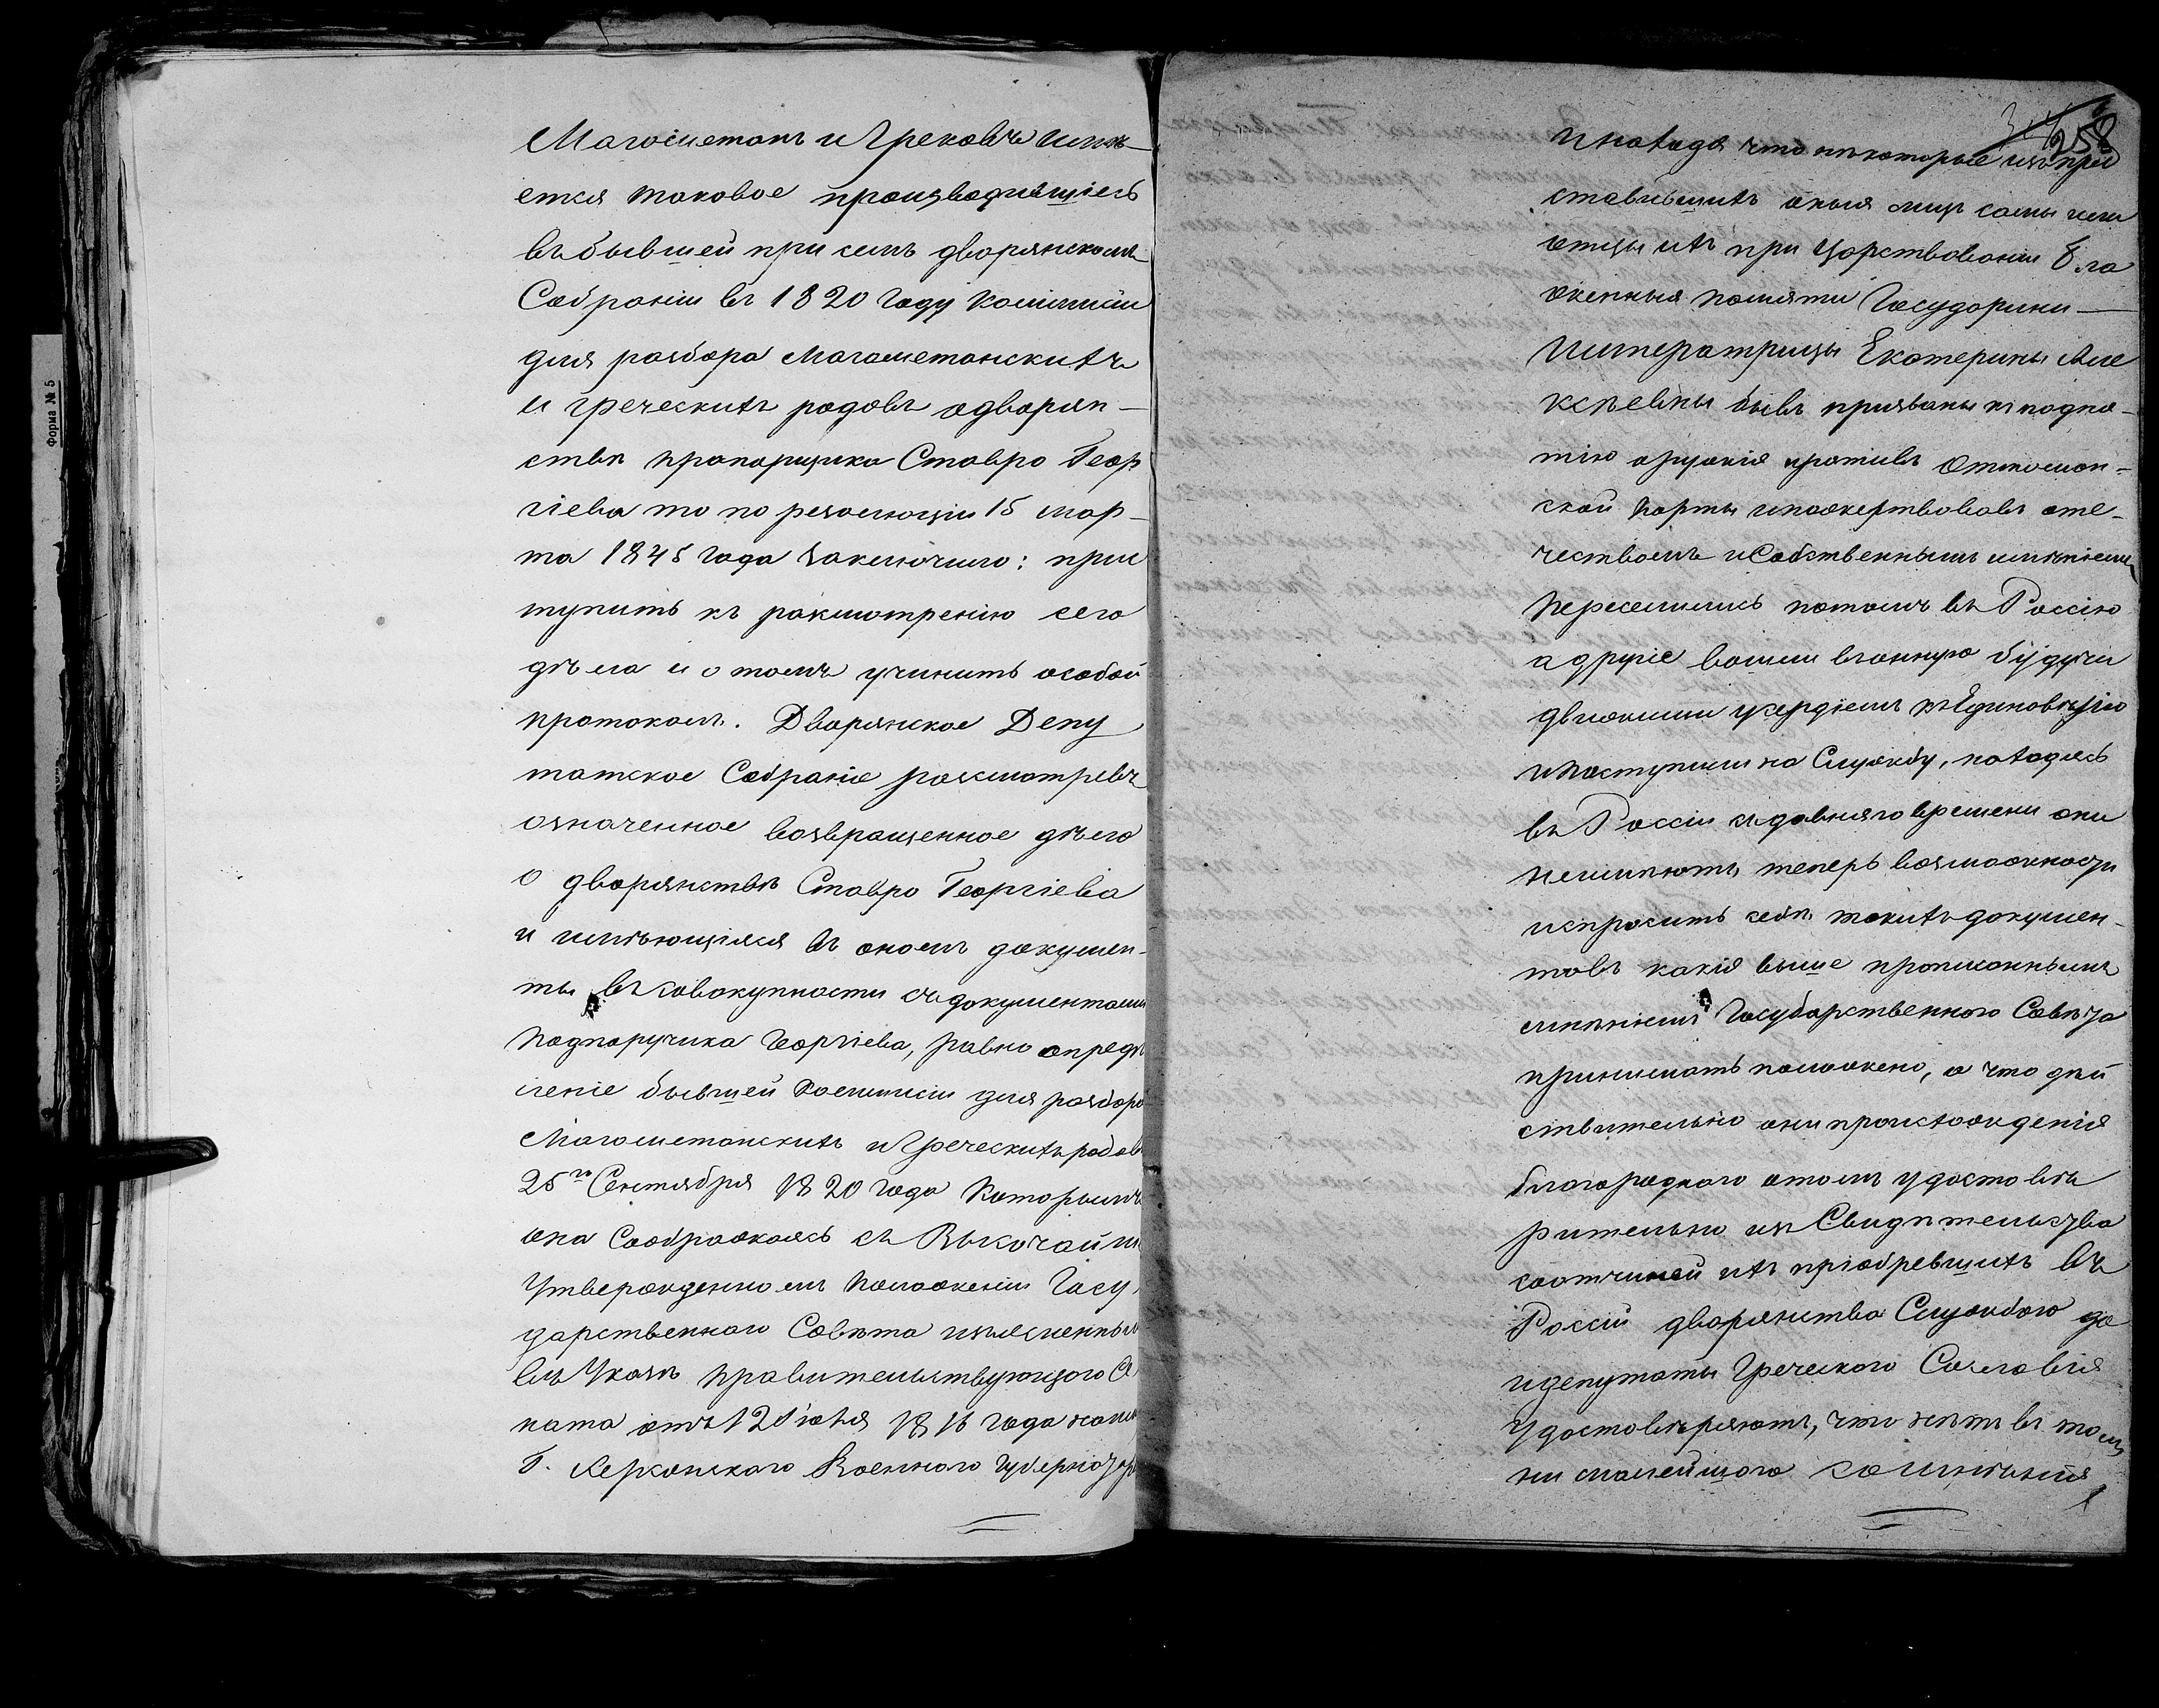 Форма № 5
Магометанъ и Грековъ имѣ-
ется таковое производившiесь
въ бывшей при семъ дворянскомъ
Собранiи въ 1820 году Коммиссiи
для разбора Магометанскихъ
и греческихъ родовъ о дворян-
ствѣ прапорщика Ставро Геор
гiева то по резолюцiи 15 мар-
та 1845 года заключило: прис
тупить къ разсмотренiю сего
дѣла и о томъ учинить особой
протоколъ. Дворянское Депу
татское Собранiе разсмотревъ
означенное возвращенное дѣло
о дворянствѣ Ставро Георгiева
и имѣющiяся въ ономъ докумен-
ты въ совокупности съ документами
Подпоручика Георгiева, равно опредѣ
ленiе бывшей Коммисiи для разбора
Магометанскихъ и Греческихъ родовъ
25го Сентября 1820 года Которымъ
она Соображаясь съ Высочайше
Утвержденномъ Положенiи Госу
дарственного Совѣта изъясненнымъ
въ Указѣ правительствующаго Се
ната отъ 12 Iюля 1816 года на имя
Г. Херсонскаго Военного Губернатора
258
и находя что нѣкоторые изъ пред
ставившихъ оныя лицъ сами или
отцы ихъ при Царствованiи бла
женныя памяти Государыни
Императрицы Екатерины Але
ксѣевны бывъ призваны къ подня-
тiю оружiя противъ Оттоман-
ской Порты и пожертвовавъ оте-
чествомъ и Собственнымъ имѣнiемъ
переселились потомъ въ Россiю
а другiе вошли въ оную будучи
движими усердiемъ къ Единовѣрiю
и поступили на Службу, находясь
въ Россiи съ давняго времени они
неимѣютъ теперь возможности
испросить себѣ такихъ докумен-
товъ какiя выше прописаннымъ
мнѣнiемъ Государственного Совѣта
принимать положено, а что дѣй
ствительно они происхожденiя
благородного о томъ удостовѣ
рительно изъ Свидѣтельства
соотчичей ихъ прiобревшихъ въ
Россiи дворянства Службою да
и депутаты Греческого Сословiя
Удостовѣряютъ, что нѣтъ въ томъ
ни малейшаго сомнѣнiя